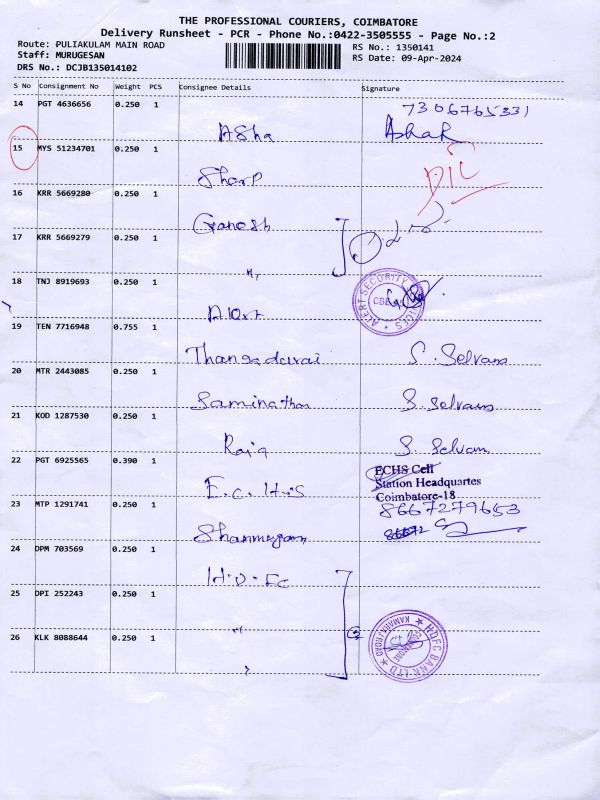 THE PROFESSIONAL COURIERS, COIMBATORE
Delivery Runsheet - PCR - Phone No.:0422-3505555 - Page No.:2
Route: PULIAKULAM MAIN ROAD
RS No.: 1350141
Staff: MURUGESAN
RS Date: 09-Apr-2024
DRS No.: DCJB135014102
S No Consignment No Weight PCS Consignee Details Signature
14 PGT 4636656 0.250 1
7306765331
Asha
15 MYS 51234701 0.250 1
Sharp
16 KRR 5669280 0.250 1
Ganesh
17 KRR 5669279 0.250 1
18 TNJ 8919693 0.250 1
ALERT SECURITY
CBE
Alert
19 TEN 7716948 0.755 1
Thangadurai S. Selvam
20 MTR 2443085 0.250 1
Saminathan S. Selvam
21 KOD 1287530 0.250 1
Raja S. Selvam
22 PGT 6925565 0.390 1
ECHS Cell
Station Headquartes
E.C.H.S Coimbatore-18
23 MTP 1291741 0.250 1
8667279653
Shanmugam
24 DPM 703569 0.250 1
25 DPI 252243 0.250 1
26 KLK 8088644 0.250 1
HDFC BANK LTD
KAMARAJ ROAD